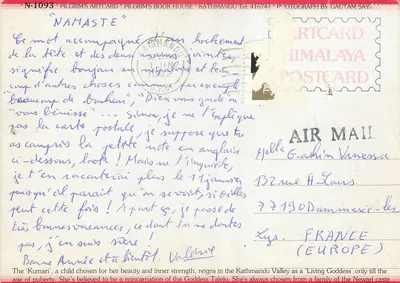 N-1093 PILGRIM'S ARTCARD · PILGRIM'S BOOK HOUSE · KATHMANDU Tel 416744 · PHOTOGRAPH BY GAUTAM SAY
"NAMASTE"
Ce mot accompagné d'un hochement
de la tête et des deux mains jointes,
signifie bonjour en népalais et beau
coup d'autres choses comme par exemple
"beaucoup de bonheur", "Dieu vous garde ou
vous bénisse"... Sinon, je ne t'explique
pas la carte postale, je suppose que tu
as compris la petite note en anglais
ci-dessous, look! Mais ne t'inquiète,
je t'en raconterai plus le 11 janvier
puisqu'il paraît qu'on se voit, si Gilles
peut cette fois! A part ça, je passe de
très bonnes vacances, ce dont tu ne doutes
pas, j'en suis sûre!
Bonne Année et à bientôt. Valérie
ARTCARD
HIMALAYA
POSTCARD
AIR MAIL
Melle Vanessa
132 rue A.
77190 Dammarie-les
Lys. FRANCE
(EUROPE)
The 'Kumari', a child chosen for her beauty and inner strength, reigns in the Kathmandu Valley as a 'Living Goddess' only till the
age of puberty. She's believed to be a reincarnation of the Goddess Taleju. She's always chosen from a family of the Newari caste